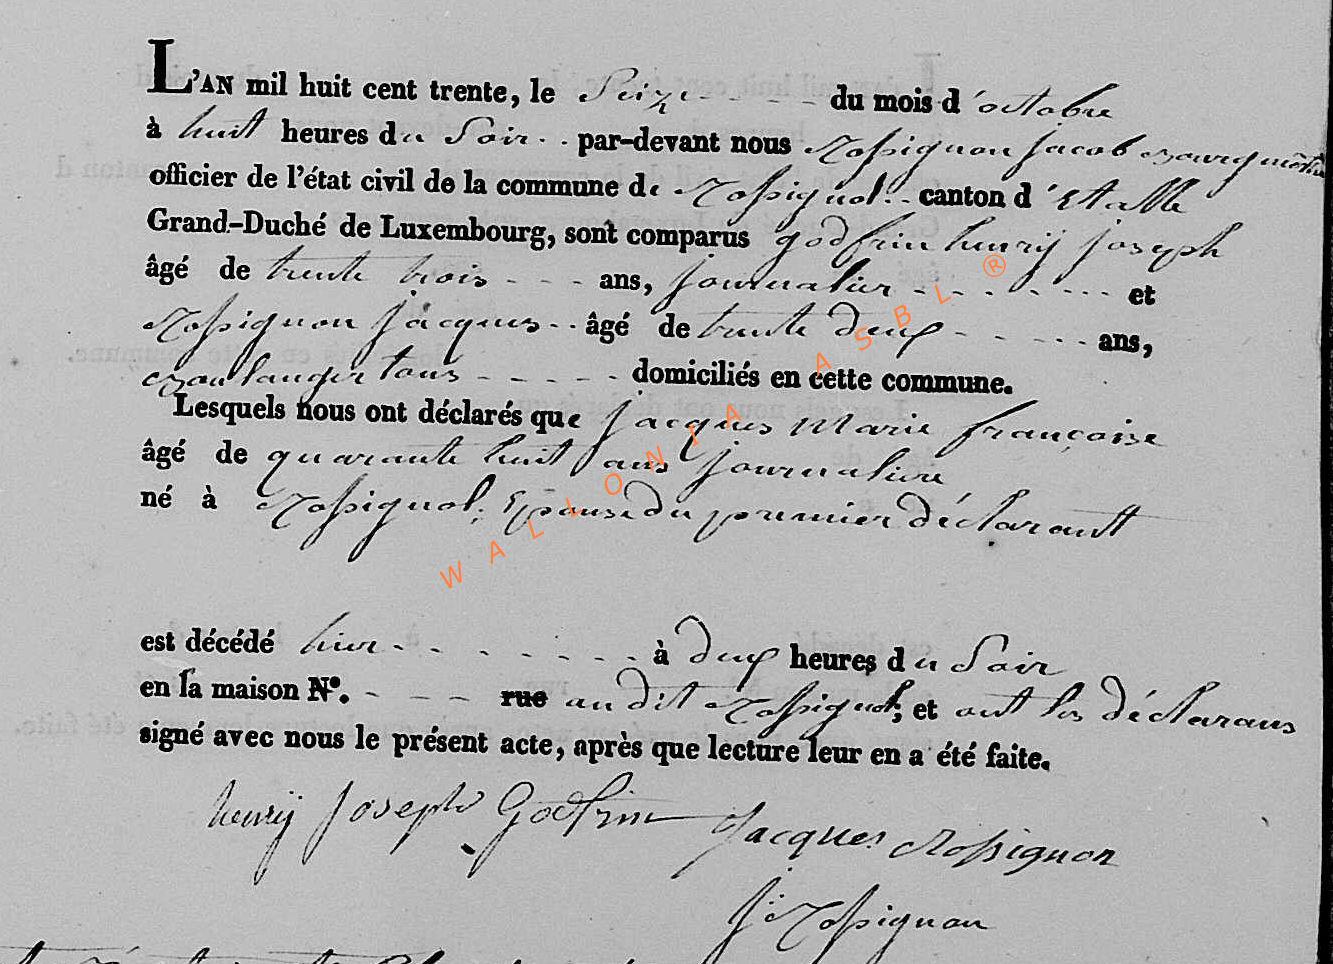 L'AN mil huit cent trente, le Seize du mois d'octobre
à huit heures du Soir par-devant nous Rossignon jacob bourguemêstre
officier de l'état civil de la commune de Rossignol canton d'Etalle
Grand-Duché de Luxembourg, sont comparus godfrin henrij joseph
âgé de trente trois ans, journalier et
Rossignon jacques âgé de trente deux ans,
boulanger tous domiciliés en cette commune.
Lesquels nous ont déclarés que jacques marie françoise
âgé de quarante huit ans journaliere
né à Rossignol, Epouse du premier déclarant
est décédé hier à deux heures du Soir
en la maison N°. rue au dit Rossignol, et ont les déclarans
signé avec nous le présent acte, après que lecture leur en a été faite.
henrij joseph Godfrin Jacques Rossignon
J: Rossignon
WALLONIA ASBL ®